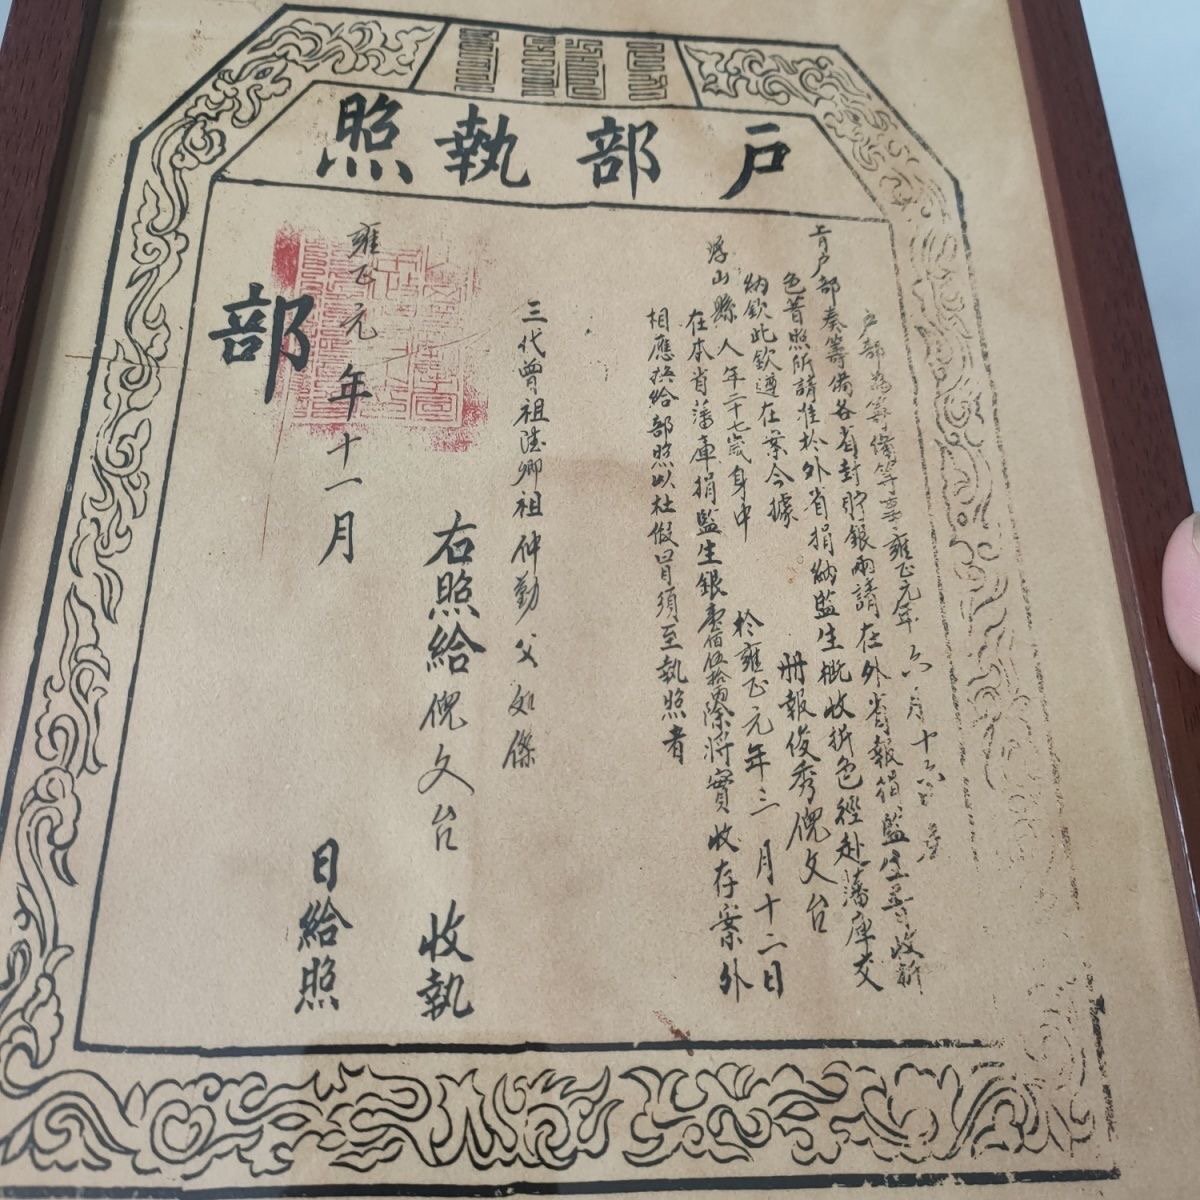 戶部執照
戶部為籌備等事雍正元年六月十六
上戶部奏籌備各省封貯銀兩請在外省報捐監生普收折
色普照所請准於外省捐納監生概收折色徑赴藩庫交
納欽此欽遵在案今據 冊報俊秀倪文台
浮山縣人年二十七歲身中 於雍正元年三月十二日
在本省藩庫捐監生銀壹佰伍拾兩除將實收存案外
相應換給部照以杜假冒須至執照者
三代曾祖 卿祖仲勤父如傑
右照給倪文台 收執
雍正元年十一月 日給照
部